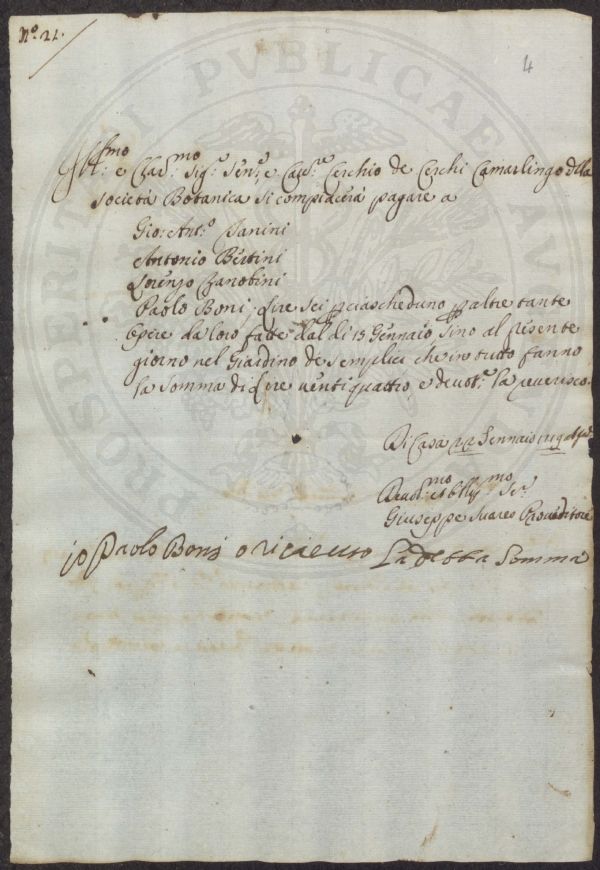 N.º 21.
4
Ill.mo e Clar.mo Sig.r Sen.re e Cav.re Cerchio de Cerchi Camarlingo della
Società Botanica si compiacerà pagare a
Gio: Ant.º Panini
Antonio Bertini
Lorenzo Zanobini
Paolo Boni; Lire sei p ciascheduno p altre tante
Opere da loro fatte dal dì 15 Gennaio sino al presente
giorno nel Giardino de Semplici che in tutto fanno
la somma di Lire ventiquattro, e devot.e la reverisco.
Di Casa Gennaio
Devot.mo et Obblig.mo Ser.
Giuseppe Suares Proveditore
io Paolo Boni o riceuto La detta Somma
PROSPERITATI PVBLICAE AVG